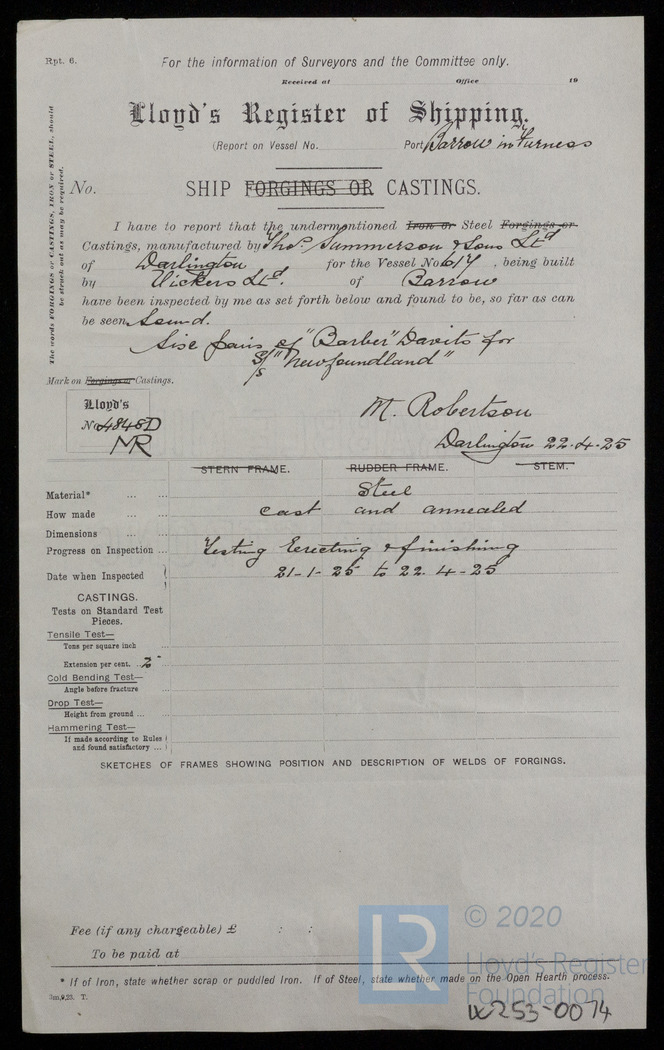 Rpt. 6.
For the information of Surveyors and the Committee only.
Received at Office 19
Lloyd's Register of Shipping.
(Report on Vessel No. Port Barrow in Furness
No.
SHIP FORGINGS OR CASTINGS.
The words FORGINGS or CASTINGS, IRON or STEEL, should
be struck out as may be required.
I have to report that the undermentioned Iron or Steel Forgings or
Castings, manufactured by Thos. Summerson & Sons Ltd
of Darlington for the Vessel No 617, being built
by Vickers Ltd. of Barrow
have been inspected by me as set forth below and found to be, so far as can
be seen, Sound.
Six pairs of "Barber" Davits for
S/S "Newfoundland"
Mark on Forgings or Castings.
Lloyd's
No 4848D
MR
M. Robertson
Darlington 22-4-25
STERN FRAME. RUDDER FRAME. STEM.
Material* ... ... Steel
How made ... ... cast and annealed
Dimensions ... ...
Progress on Inspection ... Testing Erecting & finishing
Date when Inspected 21-1-25 to 22.4-25
CASTINGS.
Tests on Standard Test
Pieces.
Tensile Test—
Tons per square inch ...
Extension per cent. ...
Cold Bending Test—
Angle before fracture ...
Drop Test—
Height from ground ...
Hammering Test—
If made according to Rules
and found satisfactory ...
SKETCHES OF FRAMES SHOWING POSITION AND DESCRIPTION OF WELDS OF FORGINGS.
Fee (if any chargeable) £ : :
To be paid at
* If of Iron, state whether scrap or puddled Iron. If of Steel, state whether made on the Open Hearth process.
Jan,9,23. T.
LR
© 2020
Lloyd's Register
Foundation
W253-0074